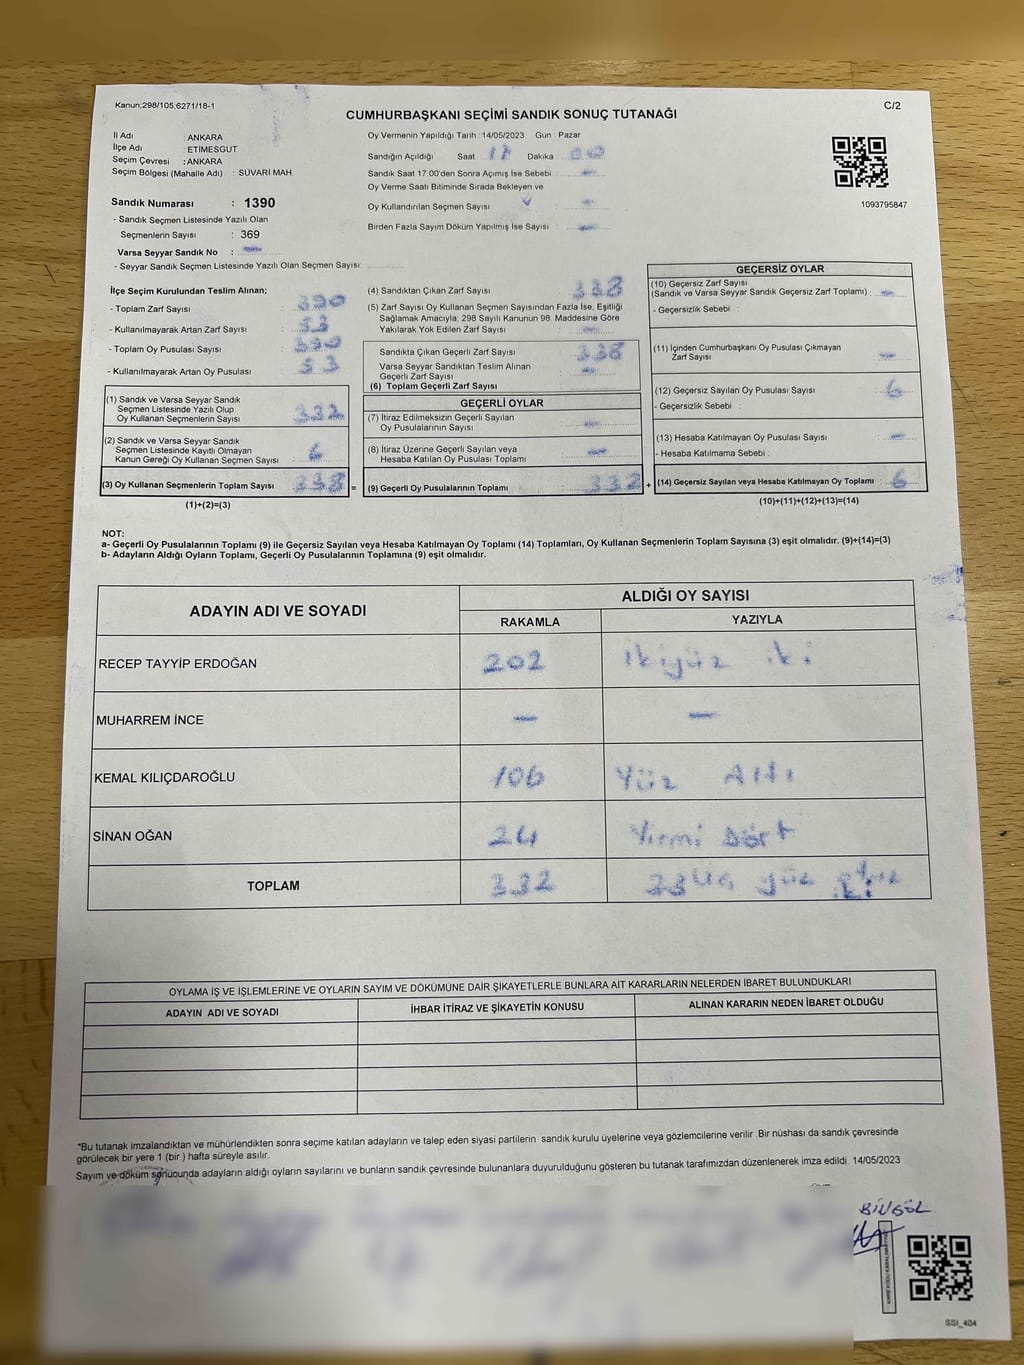 Kanun;298/105;6271/18-1
C/2
CUMHURBAŞKANI SEÇİMİ SANDIK SONUÇ TUTANAĞI
İl Adı : ANKARA
İlçe Adı : ETİMESGUT
Seçim Çevresi : ANKARA
Seçim Bölgesi (Mahalle Adı) : SÜVARİ MAH.
Sandık Numarası : 1390
- Sandık Seçmen Listesinde Yazılı Olan
Seçmenlerin Sayısı : 369
Varsa Seyyar Sandık No : —
- Seyyar Sandık Seçmen Listesinde Yazılı Olan Seçmen Sayısı:
Oy Vermenin Yapıldığı Tarih :14/05/2023 Gün : Pazar
Sandığın Açıldığı Saat 17 Dakika 00
Sandık Saat 17:00'den Sonra Açmış İse Sebebi : —
Oy Verme Saati Bitiminde Sırada Bekleyen ve
Oy Kullandırılan Seçmen Sayısı : —
Birden Fazla Sayım Döküm Yapılmış İse Sayısı : —
1093795847
İlçe Seçim Kurulundan Teslim Alınan;
- Toplam Zarf Sayısı : 390
- Kullanılmayarak Artan Zarf Sayısı : 53
- Toplam Oy Pusulası Sayısı : 390
- Kullanılmayarak Artan Oy Pusulası : 53
(1) Sandık ve Varsa Seyyar Sandık
Seçmen Listesinde Yazılı Olup
Oy Kullanan Seçmenlerin Sayısı : 332
(2) Sandık ve Varsa Seyyar Sandık
Seçmen Listesinde Kayıtlı Olmayan
Kanun Gereği Oy Kullanan Seçmen Sayısı : 6
(3) Oy Kullanan Seçmenlerin Toplam Sayısı : 338 =
(1)+(2)=(3)
(4) Sandıktan Çıkan Zarf Sayısı : 338
(5) Zarf Sayısı Oy Kullanan Seçmen Sayısından Fazla İse, Eşitliği
Sağlamak Amacıyla; 298 Sayılı Kanunun 98. Maddesine Göre
Yakılarak Yok Edilen Zarf Sayısı : —
Sandıkta Çıkan Geçerli Zarf Sayısı : 338
Varsa Seyyar Sandıktan Teslim Alınan
Geçerli Zarf Sayısı : —
(6) Toplam Geçerli Zarf Sayısı
GEÇERLİ OYLAR
(7) İtiraz Edilmeksizin Geçerli Sayılan
Oy Pusulalarının Sayısı : —
(8) İtiraz Üzerine Geçerli Sayılan veya
Hesaba Katılan Oy Pusulası Toplamı : —
(9) Geçerli Oy Pusulalarının Toplamı : 332 +
GEÇERSİZ OYLAR
(10) Geçersiz Zarf Sayısı
(Sandık ve Varsa Seyyar Sandık Geçersiz Zarf Toplamı) : —
- Geçersizlik Sebebi :
(11) İçinden Cumhurbaşkanı Oy Pusulası Çıkmayan
Zarf Sayısı : —
(12) Geçersiz Sayılan Oy Pusulası Sayısı : 6
- Geçersizlik Sebebi :
(13) Hesaba Katılmayan Oy Pusulası Sayısı : —
- Hesaba Katılmama Sebebi :
(14) Geçersiz Sayılan veya Hesaba Katılmayan Oy Toplamı : 6
(10)+(11)+(12)+(13)=(14)
NOT:
a- Geçerli Oy Pusulalarının Toplamı (9) ile Geçersiz Sayılan veya Hesaba Katılmayan Oy Toplamı (14) Toplamları, Oy Kullanan Seçmenlerin Toplam Sayısına (3) eşit olmalıdır. (9)+(14)=(3)
b- Adayların Aldığı Oyların Toplamı, Geçerli Oy Pusulalarının Toplamına (9) eşit olmalıdır.
ADAYIN ADI VE SOYADI
ALDIĞI OY SAYISI
RAKAMLA YAZIYLA
RECEP TAYYİP ERDOĞAN 202 ikiyüz iki
MUHARREM İNCE — —
KEMAL KILIÇDAROĞLU 106 Yüz Altı
SİNAN OĞAN 24 Yirmi Dört
TOPLAM 332 yüz
OYLAMA İŞ VE İŞLEMLERİNE VE OYLARIN SAYIM VE DÖKÜMÜNE DAİR ŞİKAYETLERLE BUNLARA AİT KARARLARIN NELERDEN İBARET BULUNDUKLARI
ADAYIN ADI VE SOYADI İHBAR İTİRAZ VE ŞİKAYETİN KONUSU ALINAN KARARIN NEDEN İBARET OLDUĞU
*Bu tutanak imzalandıktan ve mühürlendikten sonra seçime katılan adayların ve talep eden siyasi partilerin sandık kurulu üyelerine veya gözlemcilerine verilir .Bir nüshası da sandık çevresinde
görülecek bir yere 1 (bir ) hafta süreyle asılır.
Sayım ve döküm sonucunda adayların aldığı oyların sayılarını ve bunların sandık çevresinde bulunanlara duyurulduğunu gösteren bu tutanak tarafımızdan düzenlenerek imza edildi. 14/05/2023
BİNGÖL
SSI_404